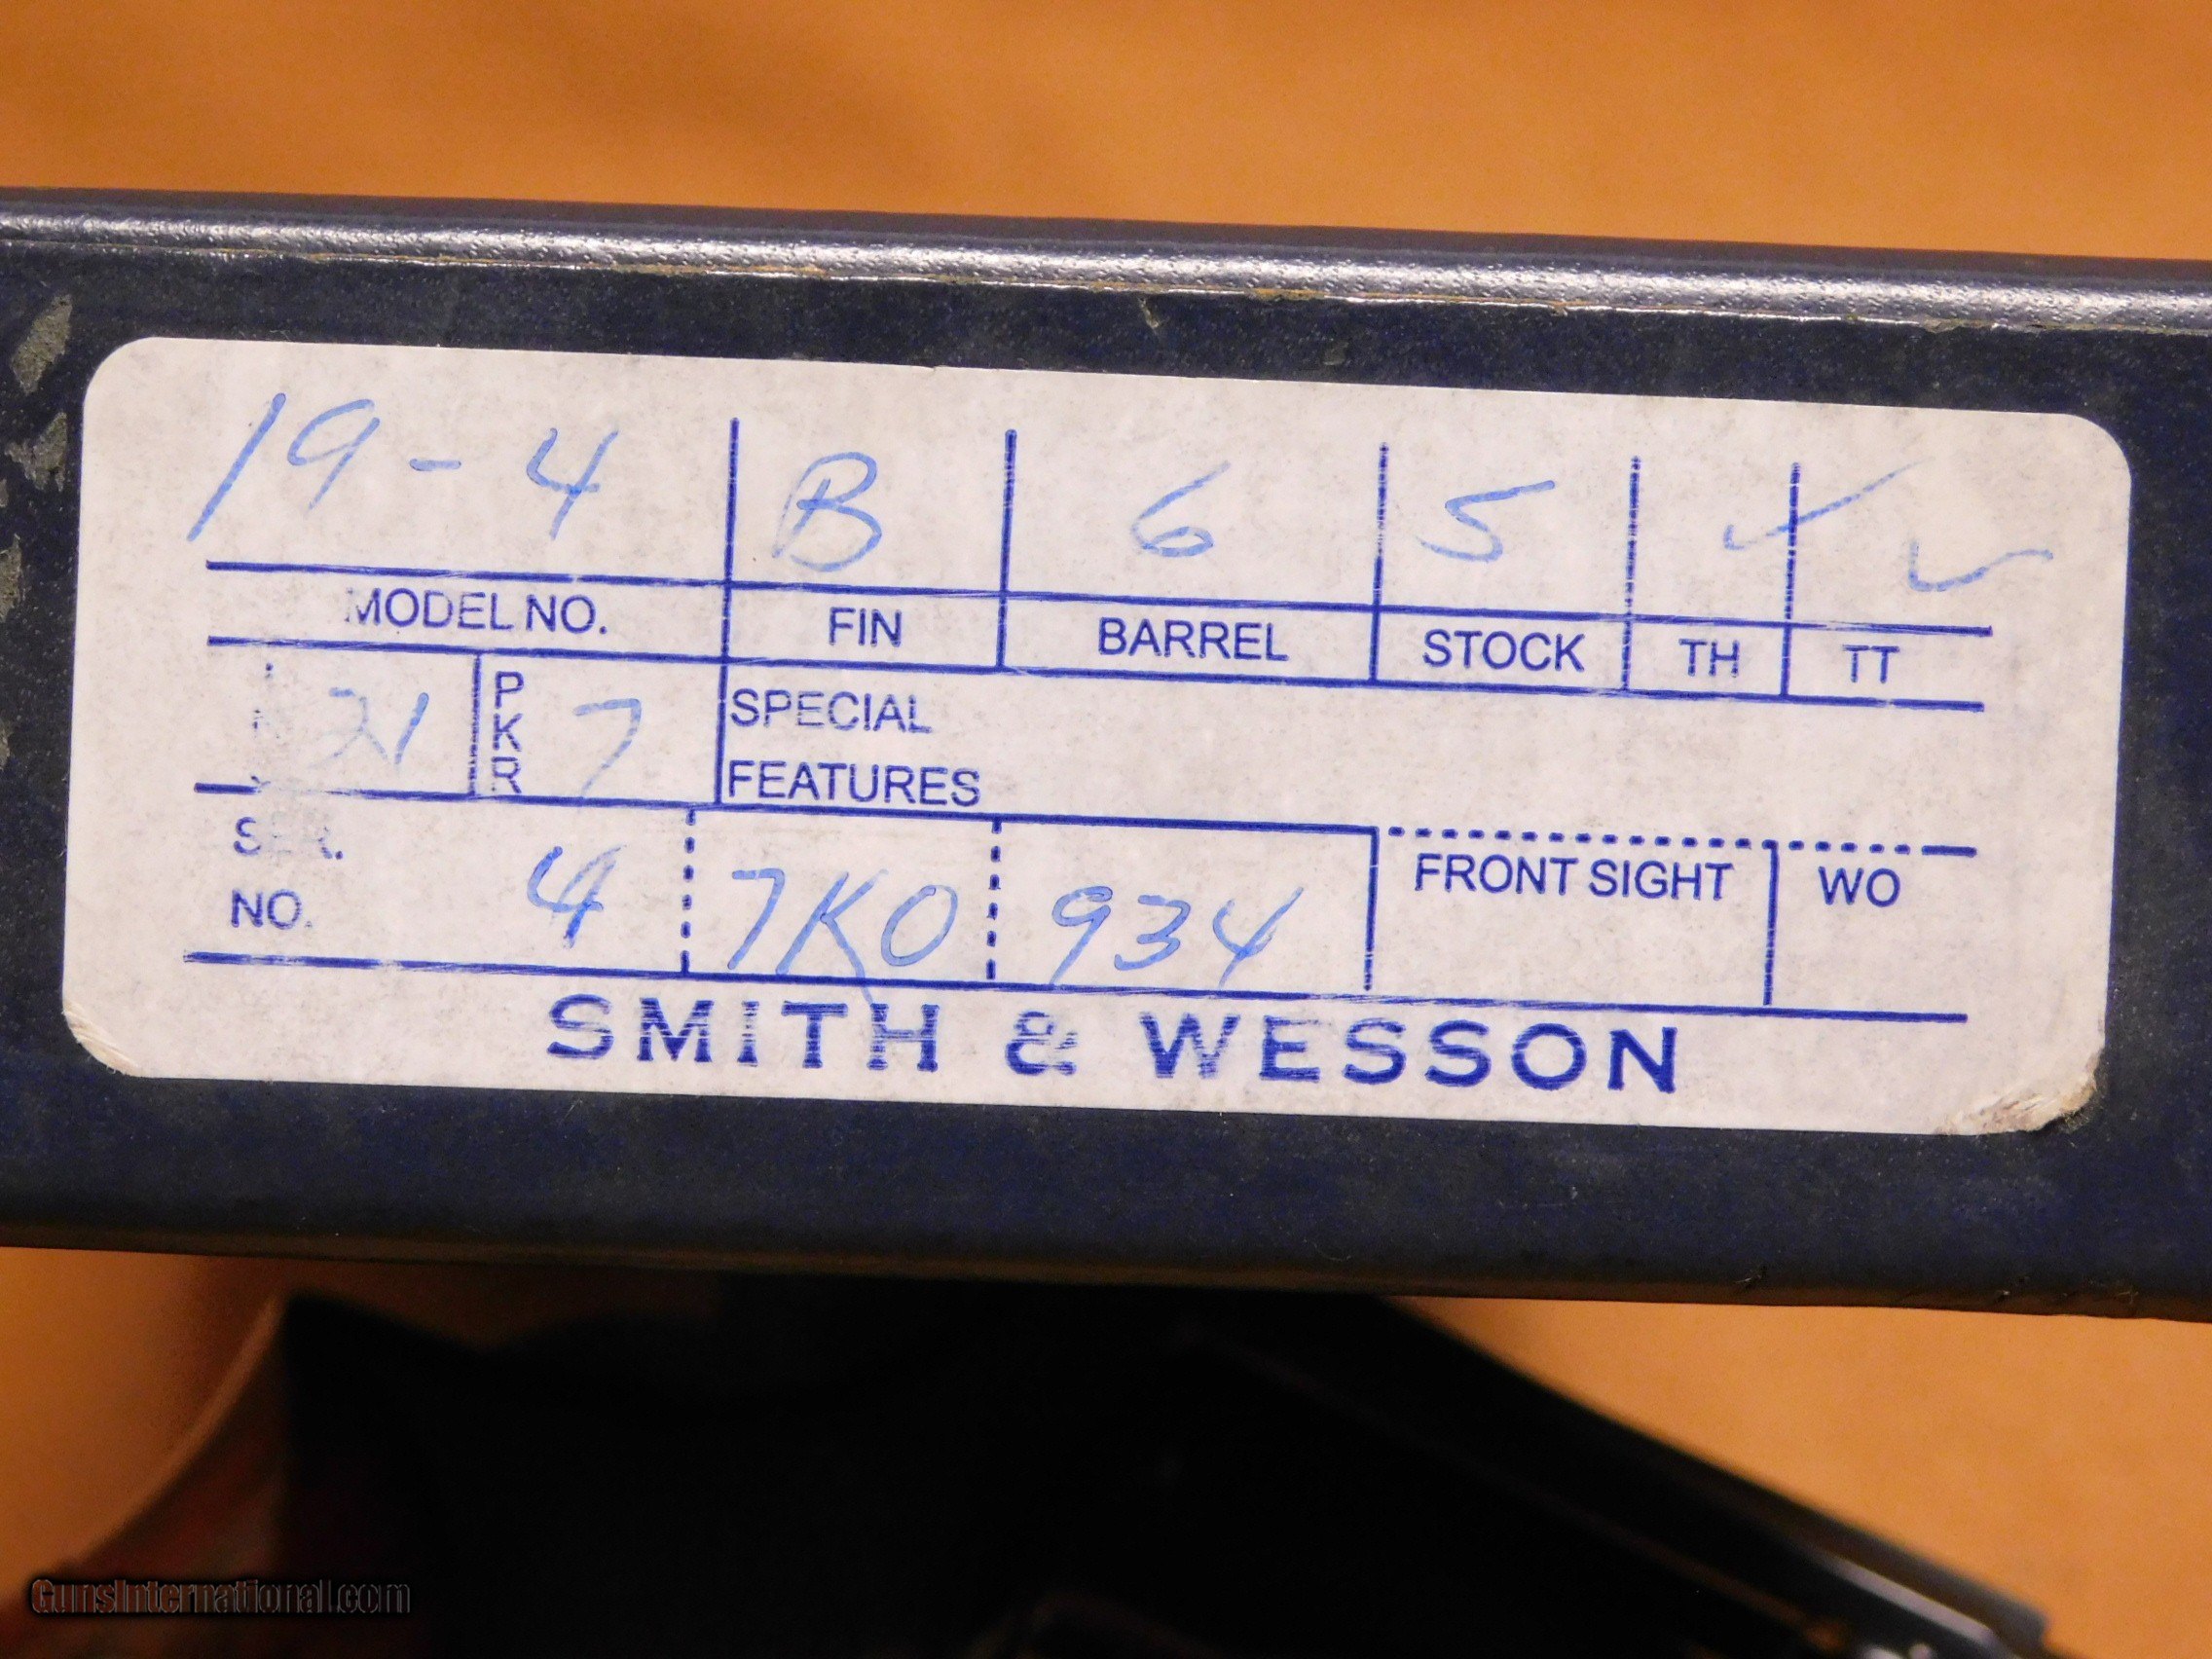 19-4 B 6 5 ✓ ✓
MODEL NO. FIN BARREL STOCK TH TT
21 PKR 7 SPECIAL
FEATURES
SER. FRONT SIGHT WO
NO. 4 7K0 934
SMITH & WESSON
GunsInternational.com